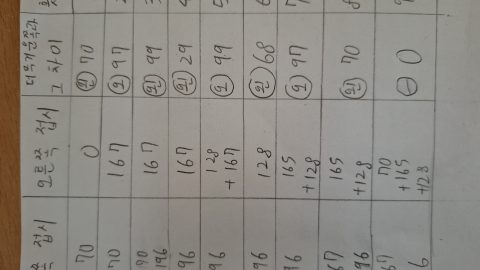 접시 오른쪽 접시 더 무거운 쪽과
그 차이
70 0 왼 70
70 167 오 97
90
196 167 왼 99
96 167 왼 29
96 128
+167 오 99
96 128 왼 68
96 165
+128 오 97
67 165 왼 70
96 +128
67 70
+165 0
6 +128